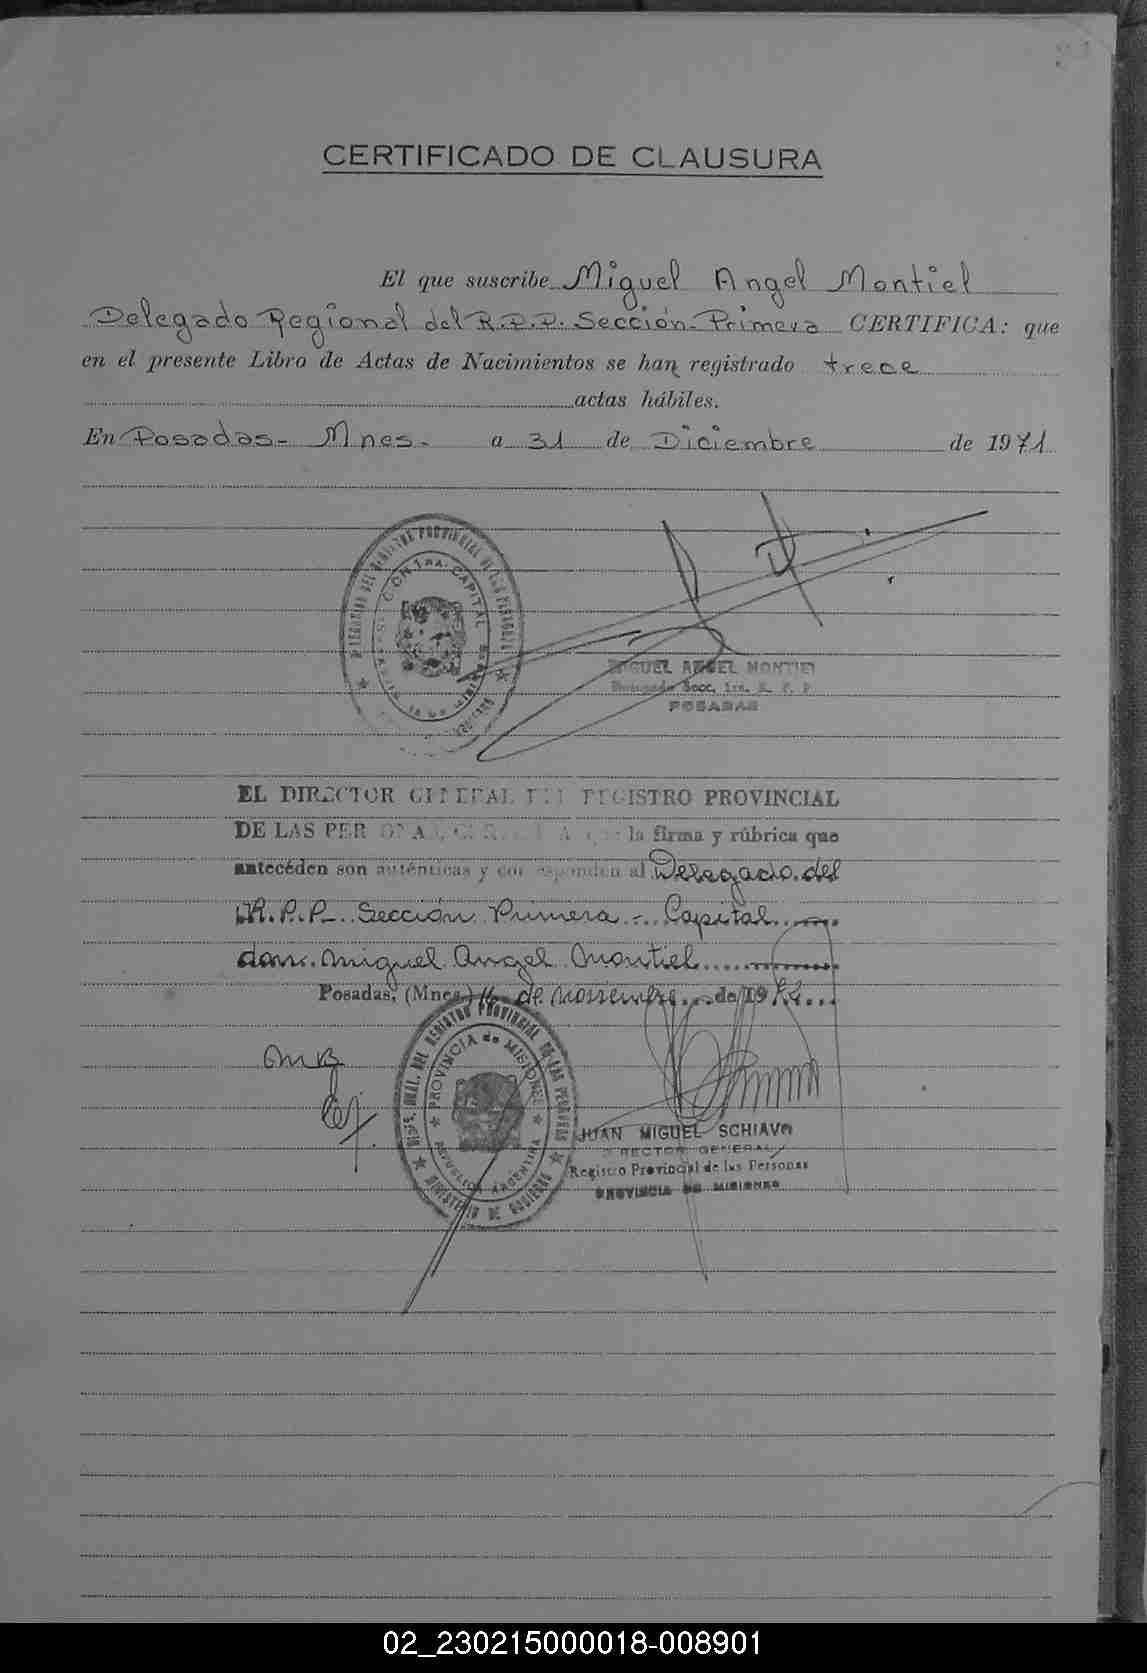 CERTIFICADO DE CLAUSURA
El que suscribe Miguel Angel Montiel
Delegado Regional del R.P.P. Sección Primera CERTIFICA: que
en el presente Libro de Actas de Nacimientos se han registrado trece
actas hábiles.
En Posadas - Mnes - a 31 de Diciembre de 1971
MIGUEL ANGEL MONTIEL
Delegado Secc. 1ra. R. P. P.
POSADAS
EL DIRECTOR GENERAL DEL REGISTRO PROVINCIAL
DE LAS PERSONAS, CERTIFICA que la firma y rúbrica que
anteceden son auténticas y corresponden al Delegado del
R.P.P. Sección Primera - Capital
don Miguel Angel Montiel
Posadas, (Mnes.) 16 de noviembre de 19
DIRE. GRAL. DEL REGISTRO PROVINCIAL DE LAS PERSONAS
PROVINCIA de MISIONES
REPUBLICA ARGENTINA
MINISTERIO DE GOBIERNO
JUAN MIGUEL SCHIAVO
DIRECTOR GENERAL
Registro Provincial de las Personas
PROVINCIA DE MISIONES
02_230215000018-008901